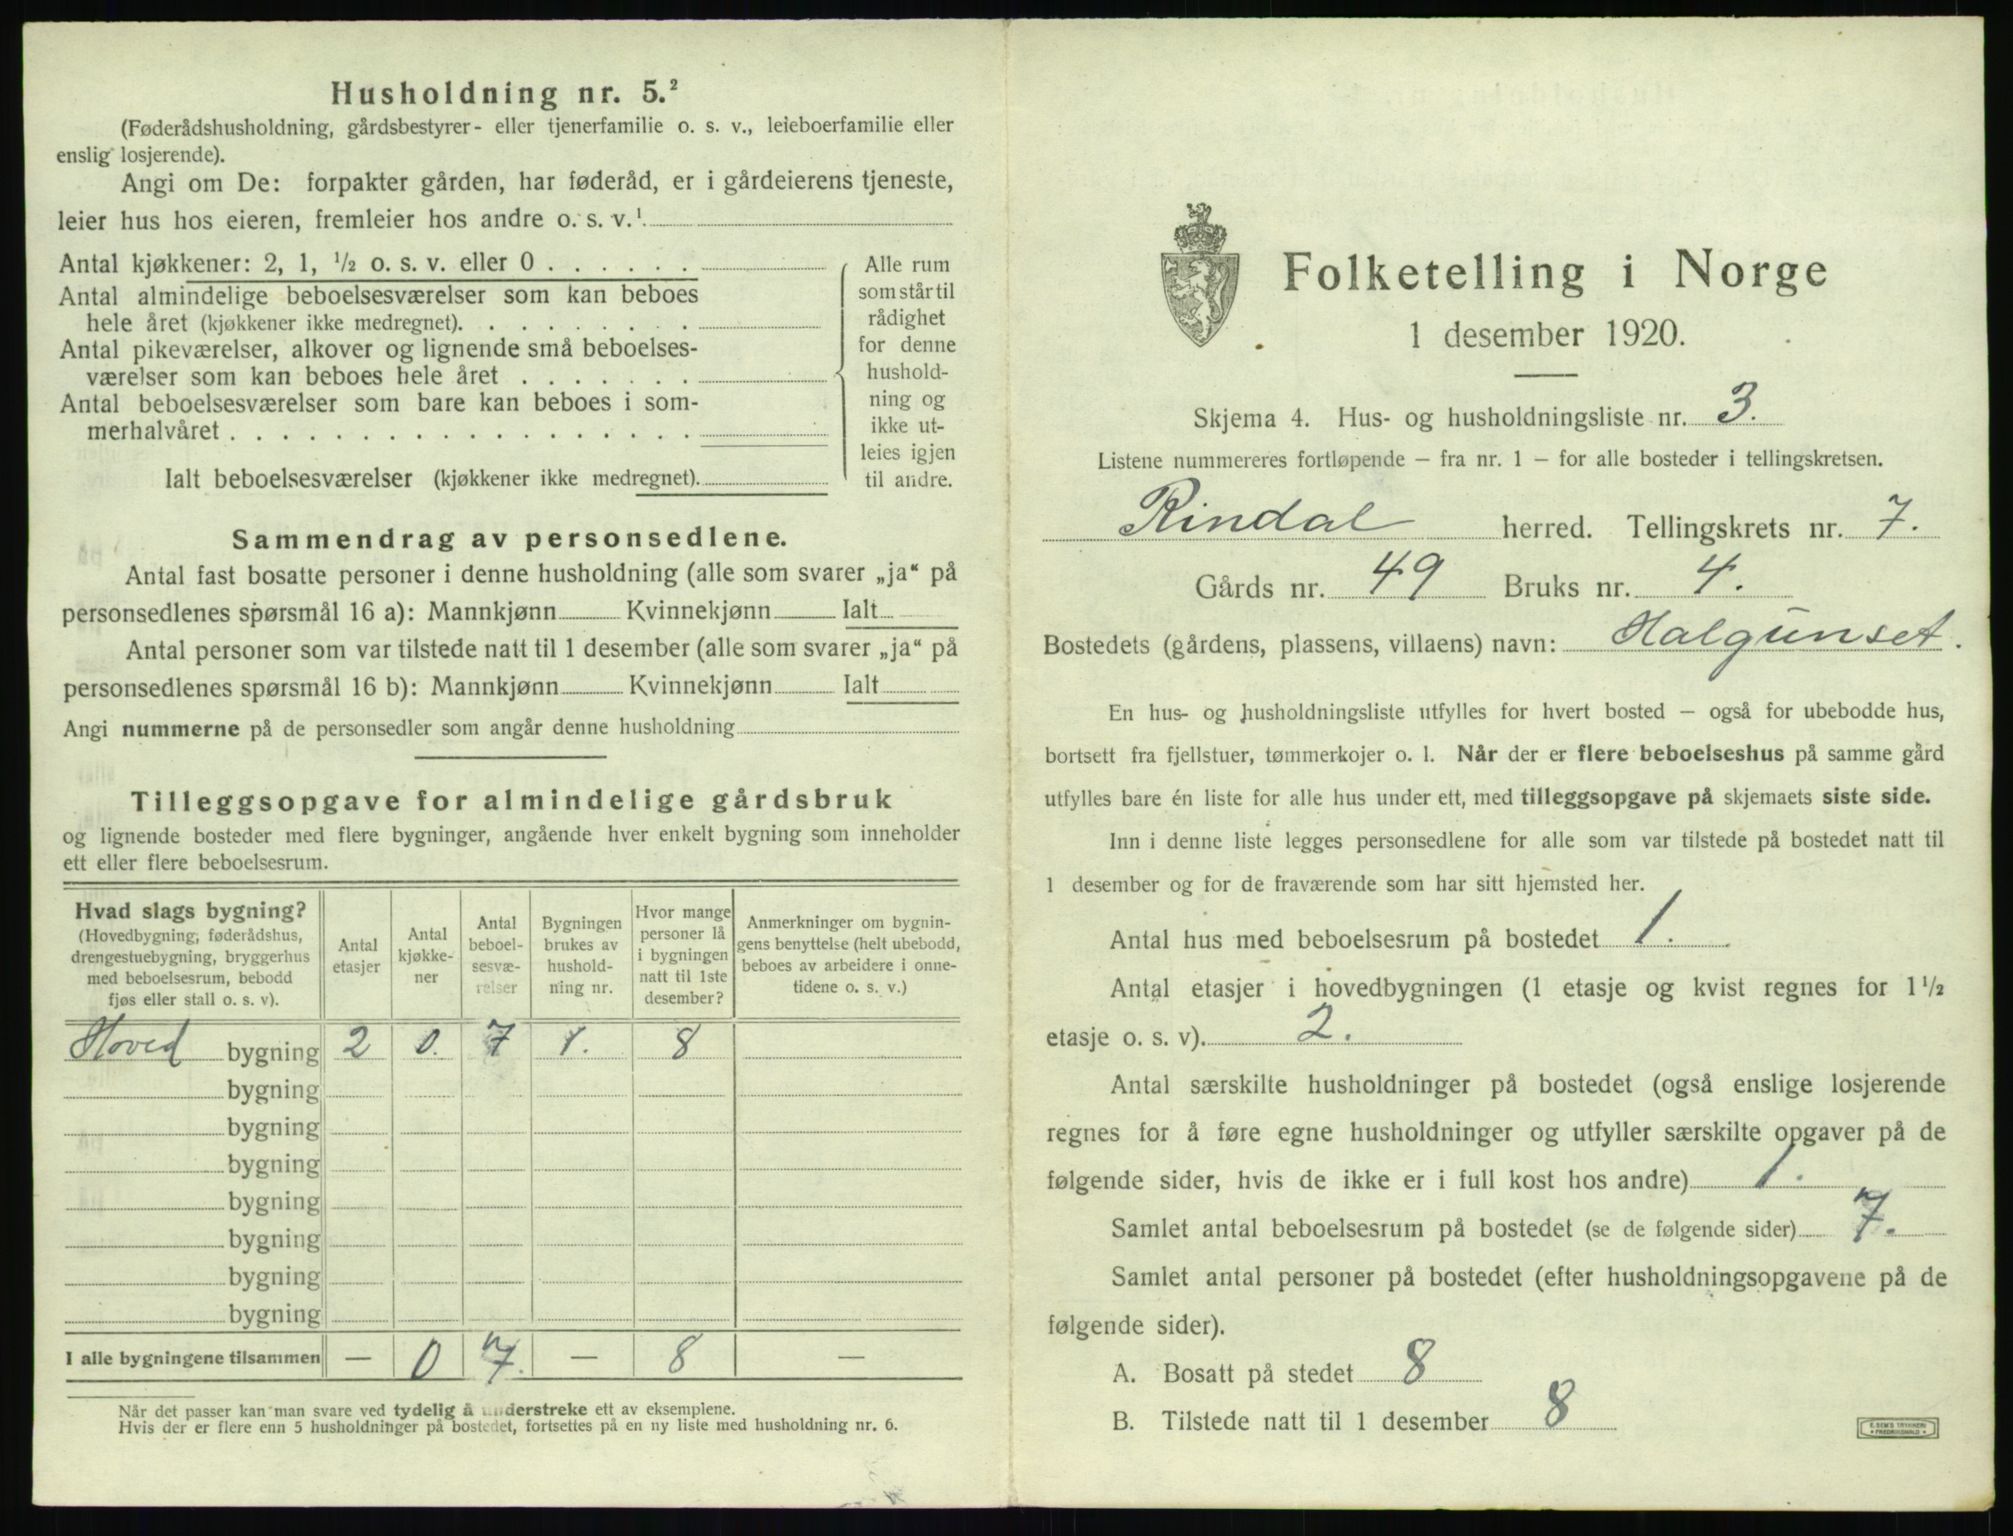 Husholdning nr. 5.²
(Føderådshusholdning, gårdsbestyrer- eller tjenerfamilie o. s. v., leieboerfamilie eller
enslig losjerende).
Angi om De: forpakter gården, har føderåd, er i gårdeierens tjeneste,
leier hus hos eieren, fremleier hos andre o. s. v.¹
Antal kjøkkener: 2, 1, ½ o. s. v. eller 0 . . . . . .
Antal almindelige beboelsesværelser som kan beboes
hele året (kjøkkener ikke medregnet). . . . . . . . .
Antal pikeværelser, alkover og lignende små beboelses-
værelser som kan beboes hele året . . . . . . .
Antal beboelsesværelser som bare kan beboes i som-
merhalvåret . . . . . . . . . . . . . . . . . .
Ialt beboelsesværelser (kjøkkener ikke medregnet).
Alle rum
som står til
rådighet
for denne
hushold-
ning og
ikke ut-
leies igjen
til andre.
Sammendrag av personsedlene.
Antal fast bosatte personer i denne husholdning (alle som svarer „ja“ på
personsedlenes spørsmål 16 a): Mannkjønn Kvinnekjønn Ialt
Antal personer som var tilstede natt til 1 desember (alle som svarer „ja“ på
personsedlenes spørsmål 16 b): Mannkjønn Kvinnekjønn Ialt
Angi nummerne på de personsedler som angår denne husholdning
Tilleggsopgave for almindelige gårdsbruk
og lignende bosteder med flere bygninger, angående hver enkelt bygning som inneholder
ett eller flere beboelsesrum.
Hvad slags bygning?
(Hovedbygning, føderådshus,
drengestuebygning, bryggerhus
med beboelsesrum, bebodd
fjøs eller stall o. s. v).
Antal
etasjer
Antal
kjøkke-
ner
Antal
beboel-
sesvæ-
relser
Bygningen
brukes av
hushold-
ning nr.
Hvor mange
personer lå
i bygningen
natt til 1ste
desember?
Anmerkninger om bygnin-
gens benyttelse (helt ubebodd,
beboes av arbeidere i onne-
tidene o. s. v.)
Hoved bygning 2 0. 7 1. 8
bygning
bygning
bygning
bygning
bygning
bygning
bygning
I alle bygningene tilsammen — 0 7. — 8 —
Når det passer kan man svare ved tydelig å understreke ett av eksemplene.
Hvis der er flere enn 5 husholdninger på bostedet, fortsettes på en ny liste med husholdning nr. 6.
Folketelling i Norge
1 desember 1920.
Skjema 4. Hus- og husholdningsliste nr. 3.
Listene nummereres fortløpende – fra nr. 1 – for alle bosteder i tellingskretsen.
Rindal herred. Tellingskrets nr. 7.
Gårds nr. 49 Bruks nr. 4.
Bostedets (gårdens, plassens, villaens) navn: Halgunset.
En hus- og husholdningsliste utfylles for hvert bosted – også for ubebodde hus,
bortsett fra fjellstuer, tømmerkojer o. l. Når der er flere beboelseshus på samme gård
utfylles bare én liste for alle hus under ett, med tilleggsopgave på skjemaets siste side.
Inn i denne liste legges personsedlene for alle som var tilstede på bostedet natt til
1 desember og for de fraværende som har sitt hjemsted her.
Antal hus med beboelsesrum på bostedet 1.
Antal etasjer i hovedbygningen (1 etasje og kvist regnes for 1½
etasje o. s. v). 2.
Antal særskilte husholdninger på bostedet (også enslige losjerende
regnes for å føre egne husholdninger og utfyller særskilte opgaver på de
følgende sider, hvis de ikke er i full kost hos andre) 1.
Samlet antal beboelsesrum på bostedet (se de følgende sider) 7.
Samlet antal personer på bostedet (efter husholdningsopgavene på de
følgende sider).
A. Bosatt på stedet 8
B. Tilstede natt til 1 desember 8
E. SEM'S TRYKKERI
FREDRIKSHALD